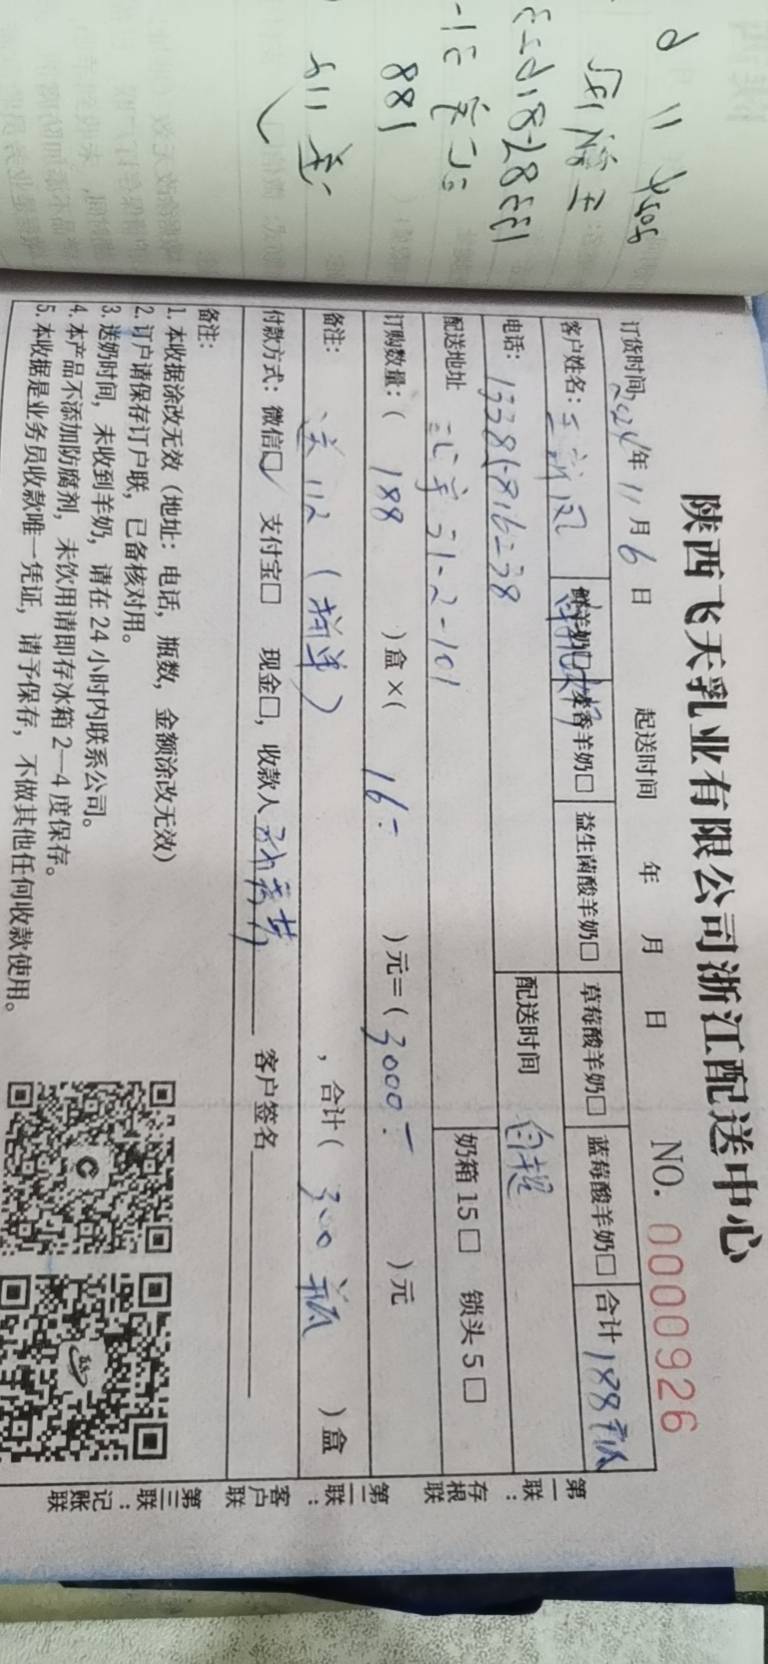 陕西飞天乳业有限公司浙江配送中心
NO. 0000926
订货时间: 2024年11月6日 起送时间 年 月 日
客户姓名: 鲜羊奶□ 麦香羊奶□ 益生菌酸羊奶□ 草莓酸羊奶□ 蓝莓酸羊奶□ 合计 188瓶
电话: 配送时间 自提
配送地址 31-2-101 奶箱 15□ 锁头 5□
订购数量:( 188 )盒×( 16- )元=( 3000- )元
备注: 送112 ( ) , 合计( 300瓶 )盒
付款方式: 微信☑ 支付宝□ 现金□, 收款人 客户签名
备注:
1. 本收据涂改无效(地址: 电话, 瓶数, 金额涂改无效)
2. 订户请保存订户联, 已备核对用。
3. 送奶时间, 未收到羊奶, 请在 24 小时内联系公司。
4. 本产品不添加防腐剂, 未饮用请即存冰箱 2—4 度保存。
5. 本收据是业务员收款唯一凭证, 请予保存, 不做其他任何收款使用。
第一联: 存根联
第二联: 客户联
第三联: 记账联
188